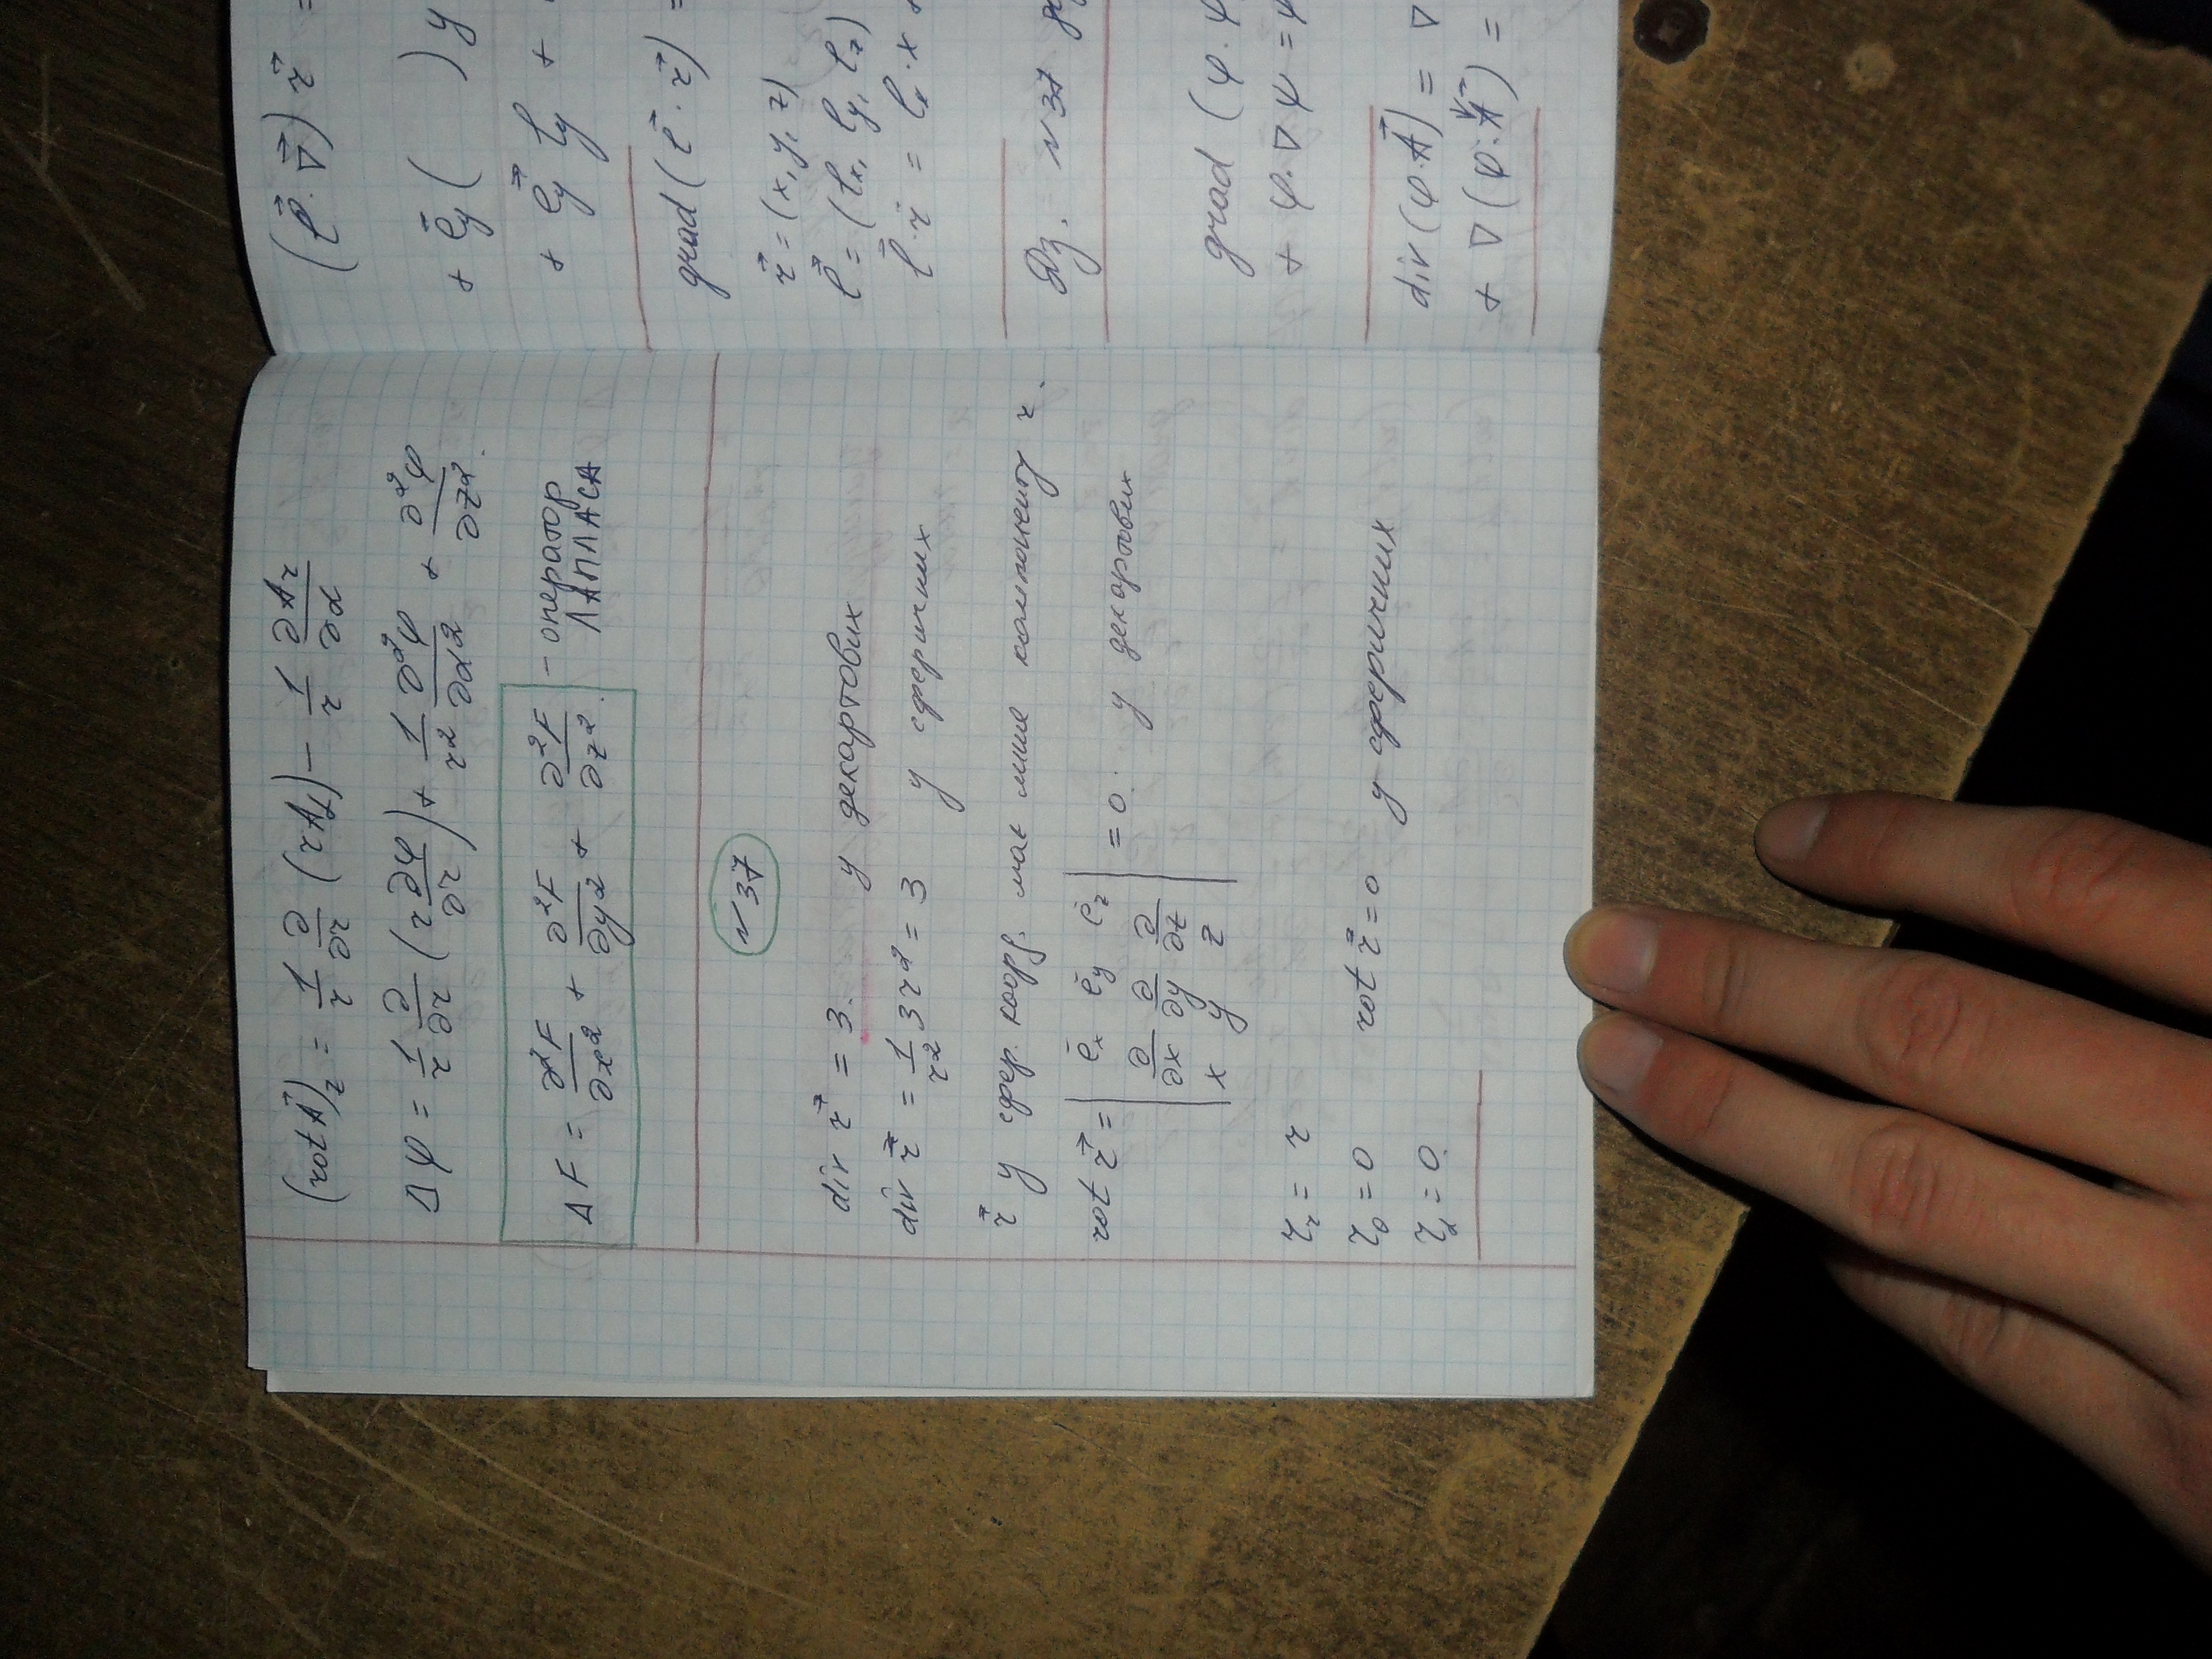 (rot A⃗)_z = 1/r ∂/∂r (r A_α) − 1/r ∂A_r/∂α
Δφ = 1/r ∂/∂r (r ∂φ/∂r) + 1/r² ∂²φ/∂α² + ∂²φ/∂z².
ΔF = ∂²F/∂x² + ∂²F/∂y² + ∂²F/∂z². – оператор
ЛАПЛАСА
N 37
div r⃗ = 3. у декартових
div r⃗ = 1/r² 3r² = 3 у сферичних
r⃗ у сфер. коорд. має лише компоненту r.
rot r⃗ = | e⃗x e⃗y e⃗z |
| ∂/∂x ∂/∂y ∂/∂z | = 0. у декартових
| x y z |
r_r = r
r_θ = 0 rot r⃗ = 0 у сферичних
r_α = 0.
(l⃗·∇⃗) r⃗ =
+ e⃗y ( ) y
+ e⃗y ly +
grad (l⃗·r⃗) =
r⃗ = (x, y, z)
l⃗ = (lx, ly, lz)
l⃗·r⃗ = lx·x +
Дз. N 37
grad (φ·ψ
+ φ·∇ψ = ψ
div (φ·A⃗) = ∇
+ ∇ (φ·A⃗) =